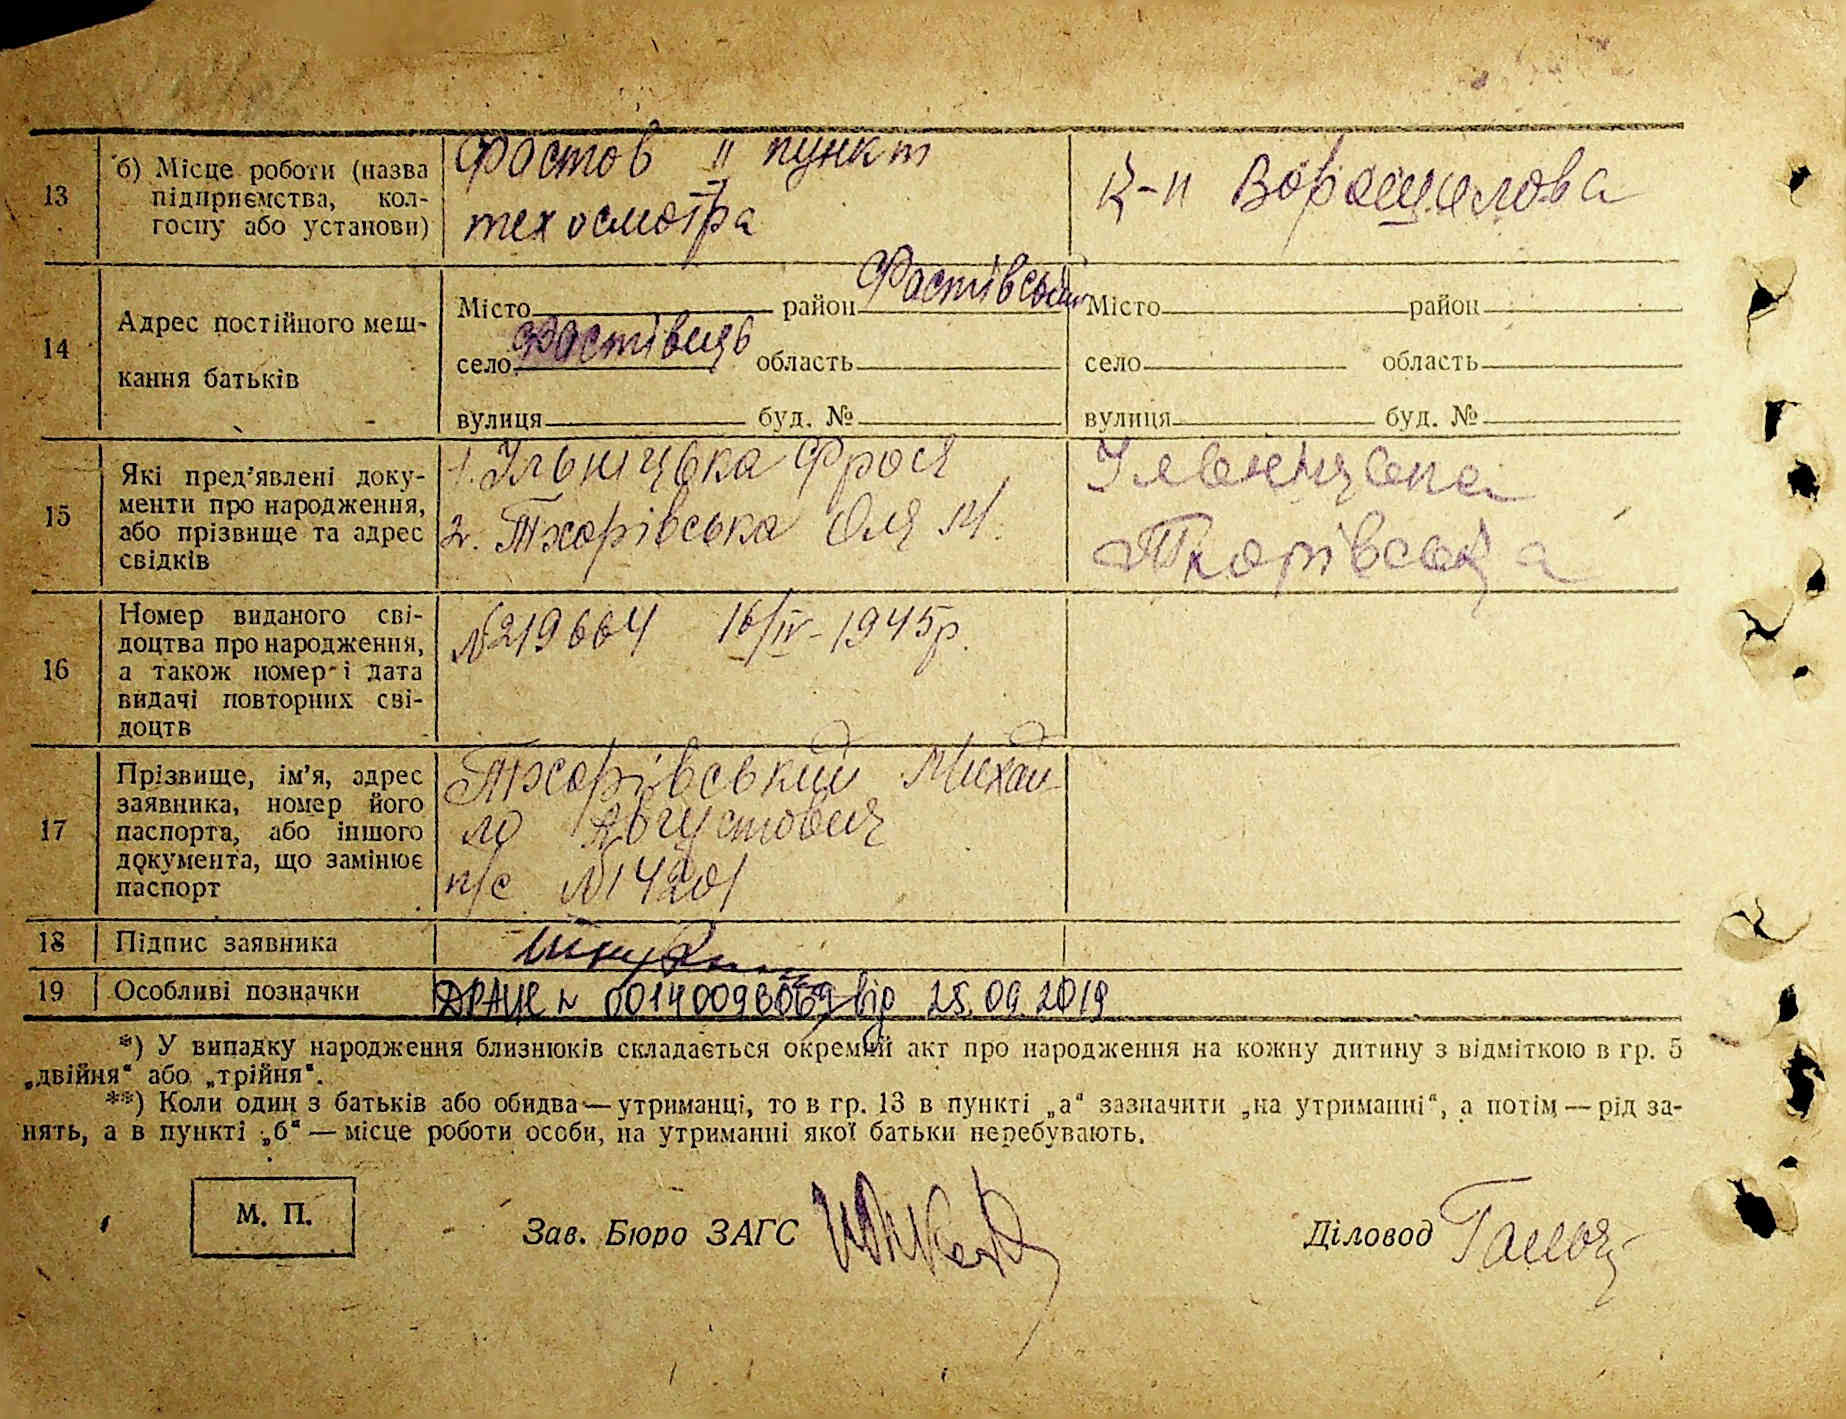 13 б) Місце роботи (назва підприємства, колгоспу або установи)
Фастов II пункт
техосмотра
К-п Ворошилова
14 Адрес постійного мешкання батьків
Місто район Фастівський
село Фастівець область
вулиця буд. №
Місто район
село область
вулиця буд. №
15 Які пред'явлені документи про народження, або прізвище та адрес свідків
1. Ільніцька Фрося
2. Тхорівська Оля М.
Ільніцька
Тхорівська
16 Номер виданого свідоцтва про народження, а також номер і дата видачі повторних свідоцтв
№219664 16/IV-1945р.
17 Прізвище, ім'я, адрес заявника, номер його паспорта, або іншого документа, що замінює паспорт
Тхорівський Михай
ло Августович
п/с №14201
18 Підпис заявника
19 Особливі позначки
ДРАЦС № 00140093069 від 25.09.2019
*) У випадку народження близнюків складається окремий акт про народження на кожну дитину з відміткою в гр. 5
„двійня" або „трійня".
**) Коли один з батьків або обидва — утриманці, то в гр. 13 в пункті „а" зазначити „на утриманні", а потім — рід за-
нять, а в пункті „б" — місце роботи особи, на утриманні якої батьки перебувають.
М. П.
Зав. Бюро ЗАГС
Діловод